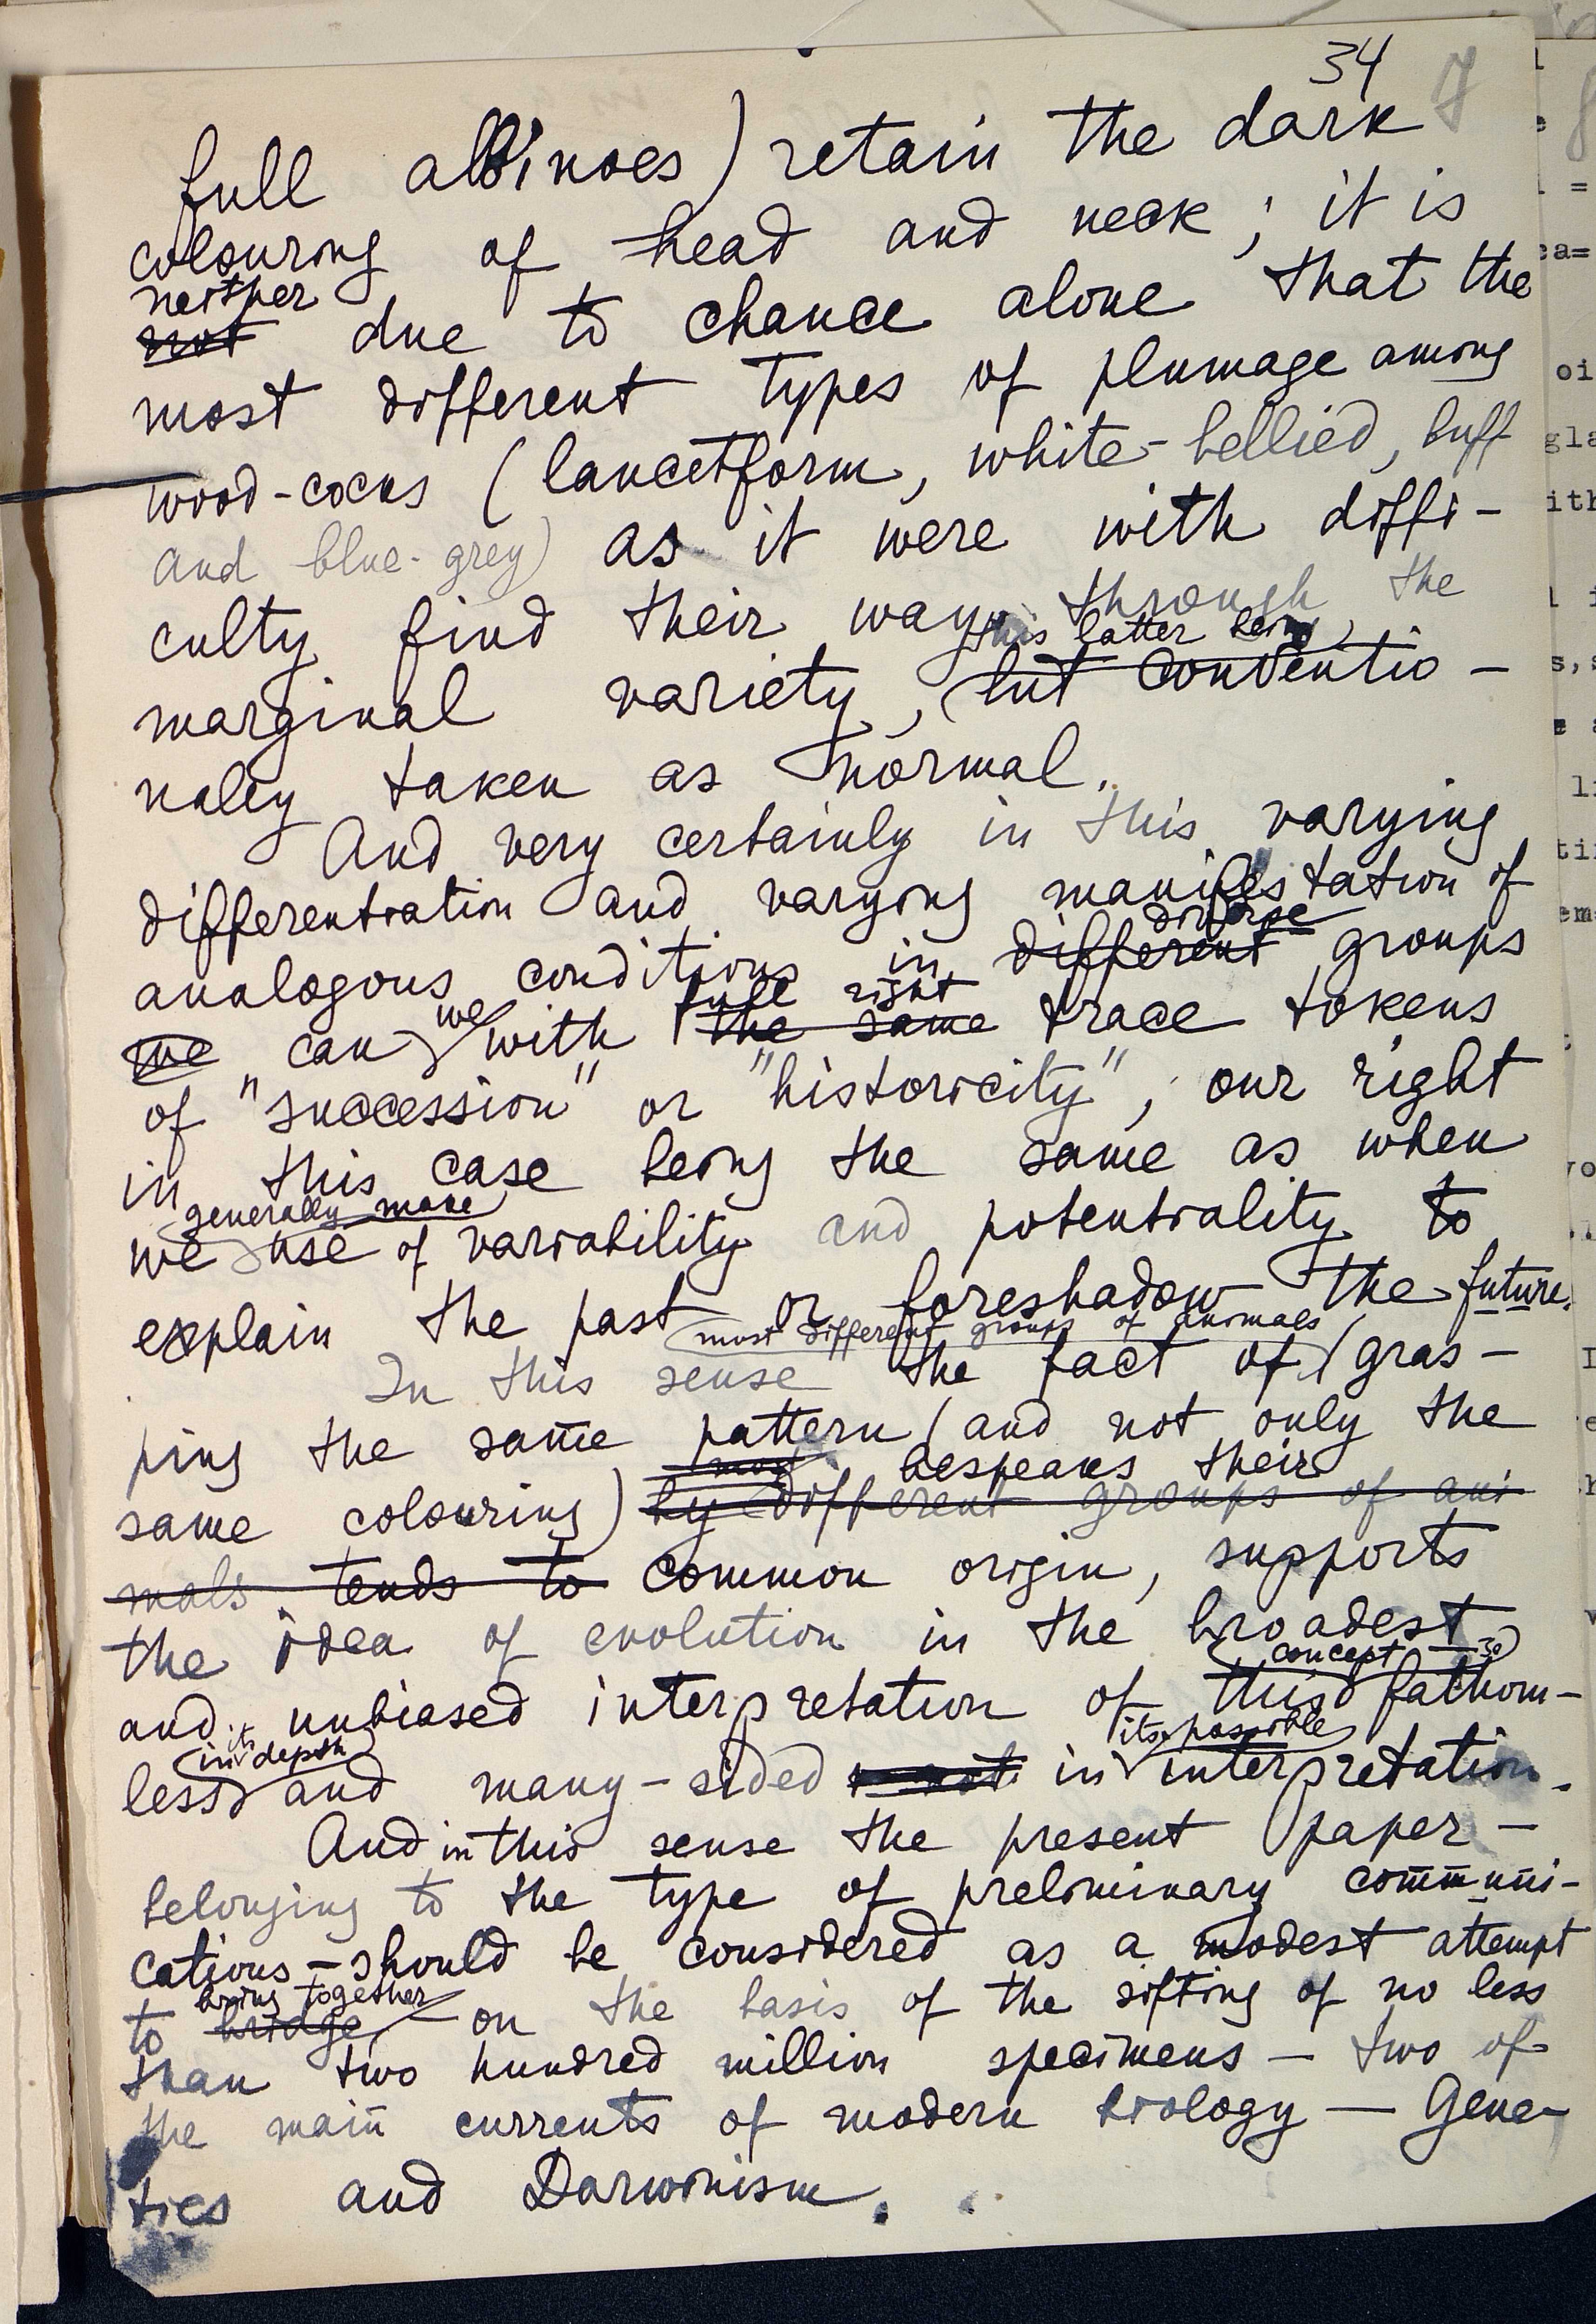 34 7
full albinoes) retain the dark
colouring of head and neck; it is
neither
not due to chance alone that the
most different types of plumage among
wood-cocks (lancetform, white-bellied, buff
and blue-grey) as it were with diffi-
culty find their way through the
this latter being
marginal variety, but conventio-
naley taken as normal.
And very certainly in this varying
differentiation and varying manifestation of
diverse
analogous conditions in different groups
we full right
we can with the same trace tokens
of "succession" or "historicity", our right
in this case being the same as when
generally make
we use of variability and potentiality to
explain the past or foreshadow the future.
most different groups of animals
In this sense the fact of gras-
ping the same pattern (and not only the
most bespeaks their
same colouring) by different groups of ani
mals tends to common origin, supports
the idea of evolution in the broadest
concept so
and unbiased interpretation of this fathom-
in its depth its possible
less and many-sided not in interpretation.
And in this sense the present paper –
belonging to the type of preliminary communi-
cations – should be considered as a modest attempt
bring together
to bridge, on the basis of the sifting of no less
than two hundred million specimens – two of
the main currents of modern biology – Gene-
tics and Darwinism.